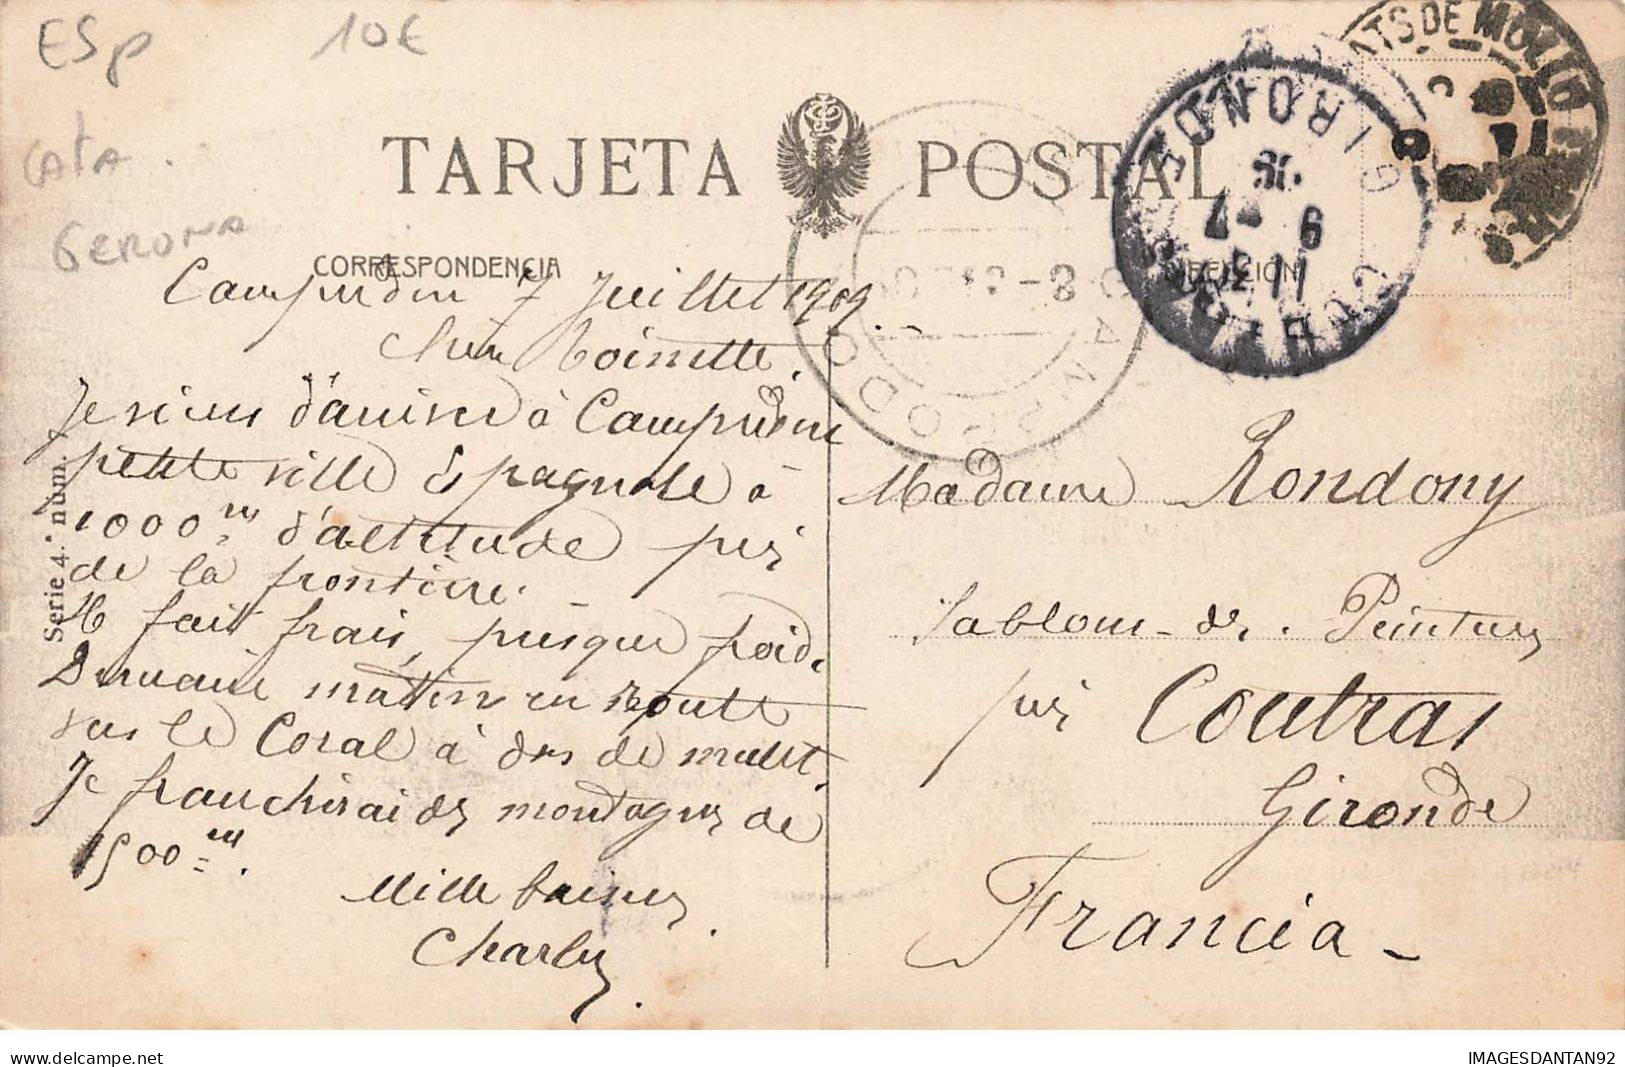 ESP 10€
CATA.
GERONA
TARJETA POSTAL
CORRESPONDENCIA
DIRECCIÓN
Serie 4.ª núm.
ATS DE MOLLO
GIRONDE
9
11
CAMPRODON
7 Juillet 1909.
Chère Toinette,
Je viens d'arriver à
petite ville Espagnole à
1000 m d'altitude près
de la frontière.
Il fait frais, presque froid.
Demain matin en route
sur le Coral à dos de mulet.
Je franchirai des montagnes de
1500 m.
Mille baisers.
Charly.
Madame Rondony
Sablons-de-Peintures
près Coutras
Gironde
Francia -
IMAGESDANTAN92
delcampe.net